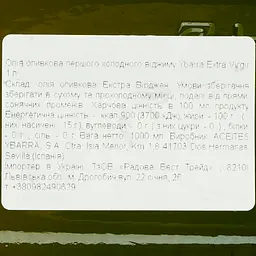 Олія оливкова першого холодного віджиму Ybarra Extra Virgin
1 л
Склад: олія оливкова Екстра Вірджен. Умови зберігання:
зберігати в сухому та прохолодному місці, подалі від прямих
сонячних променів. Харчова цінність в 100 мл продукту:
Енергетична цінність - ккал 900 (3706 кДж), жири - 100 г, (з
них насичені 15 г), вуглеводи - 0 г (з них цукри - 0), білки
- 0 г, сіль - 0 г. Вага нетто: 1000 мл. Виробник: ACEITES
YBARRA, S.A. Ctra. Isla Menor, Km 1.8 41703 Dos Hermanas,
Sevilla (Іспанія).
Імпортер в Україні: ТзОВ «Радове Вест Трейд», 82101
Львівська обл. м. Дрогобич вул. 22 січня, 36
т. +380982490679